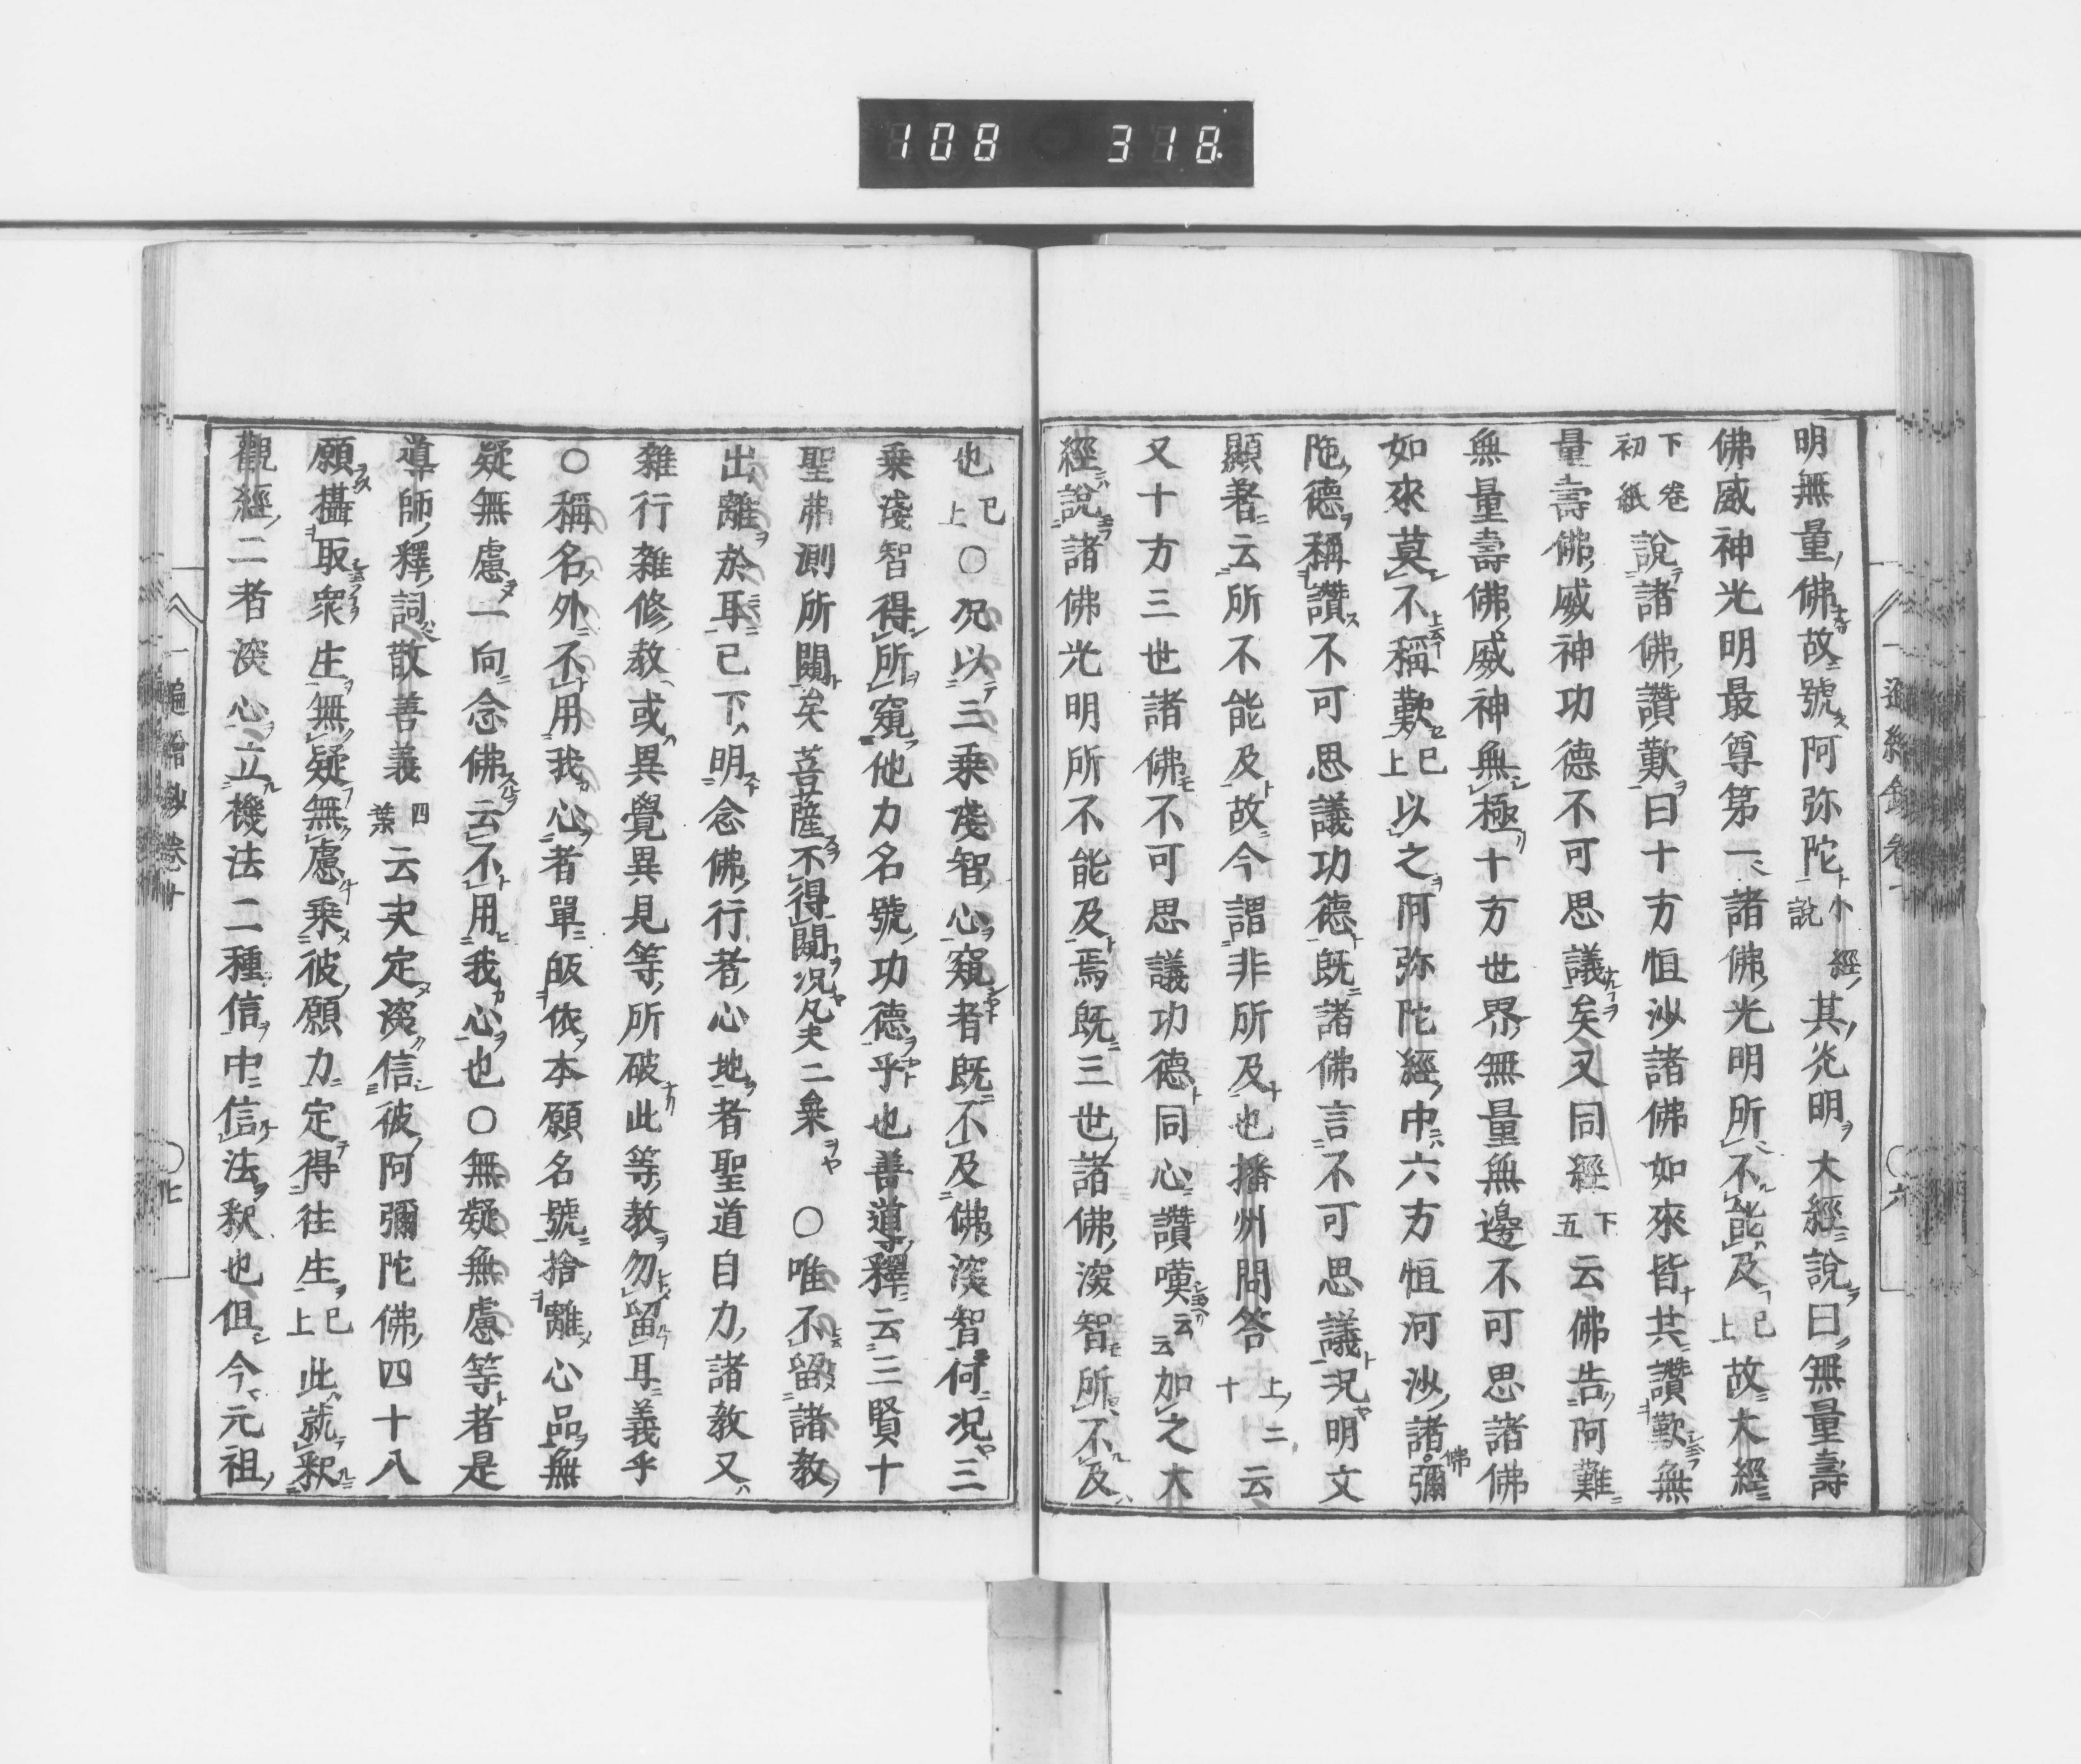 108 318
明無量佛故號阿弥陀小經說其光明大經說曰無量壽
佛威神光明最尊第一諸佛光明所不能及已上故大經
下卷初紙說諸佛讚歎曰十方恒沙諸佛如來皆共讚歎無
量壽佛威神功德不可思議矣又同經下五云佛告阿難
無量壽佛威神無極十方世界無量無邊不可思諸佛
如來莫不稱歎已上以之阿弥陀經中六方恒河沙諸佛彌
陁德稱讚不可思議功德既諸佛言不可思議况明文
顯著云所不能及故今謂非所及也播州問答上二十云
又十方三世諸佛不可思議功德同心讚嘆云云加之大
經說諸佛光明所不能及焉既三世諸佛深智所不及
也已上○况以三乘淺智心窺者既不及佛深智何况三
乘淺智得所窺他力名號功德乎也善導釋云三賢十
聖弗測所闚矣菩薩不得闚况凡夫二乘○唯不留諸教
出離於耳已下明念佛行者心地者聖道自力諸教又
雜行雜修教或異覺異見等所破此等教勿留耳義乎
○稱名外不用我心者單皈依本願名號捨離心品無
疑無慮一向念佛云不用我心也○無疑無慮等者是
導師釋詞散善義四葉云夫定深信彼阿彌陀佛四十八
願攝取衆生無疑無慮乘彼願力定得往生已上此就釈
觀經二者深心立機法二種信中信法釈也但今元祖